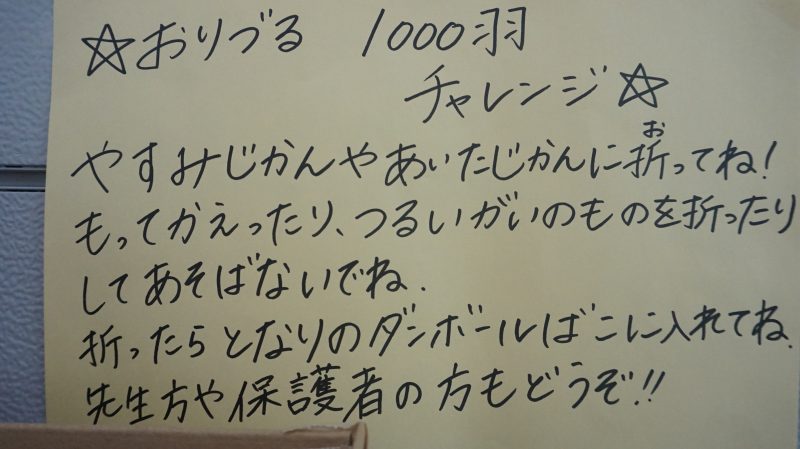 ☆おりづる 1000羽
チャレンジ☆
やすみじかんやあいたじかんに折ってね!
お
もってかえったり、つるいがいのものを折ったり
してあそばないでね.
折ったらとなりのダンボールばこに入れてね.
先生方や保護者の方もどうぞ!!